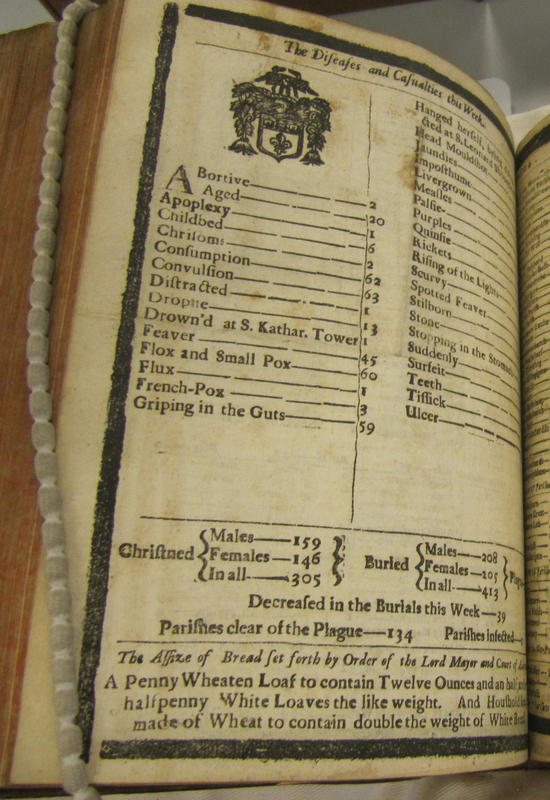 The Diſeaſes and Caſualties this Week.
ABortive 2
Aged 20
Apoplexy 1
Childbed 6
Chriſoms 2
Conſumption 62
Convulſion 63
Diſtracted 1
Dropſie 13
Drown'd at S. Kathar. Tower 1
Feaver 45
Flox and Small Pox 60
Flux 1
French-Pox 3
Griping in the Guts 59
Hanged herſelf, being
cted at S. Leonard
Head Mouldſhot
Jaundies
Impoſthume
Livergrown
Meaſles
Palſie
Purples
Quinſie
Rickets
Riſing of the Lights
Scurvy
Spotted Feaver
Stilborn
Stone
Stopping in the
Suddenly
Surfeit
Teeth
Tiſſick
Ulcer
Chriſtned { Males—159
Females—146
In all—305 }
Buried { Males—208
Females—205
In all—413 }
Decreaſed in the Burials this Week—39
Pariſhes clear of the Plague—134 Pariſhes infected—
The Aſſize of Bread ſet forth by Order of the Lord Mayor and Court of
A Penny Wheaten Loaf to contain Twelve Ounces and an half,
halfpenny White Loaves the like weight. And
made of Wheat to contain double the weight of White